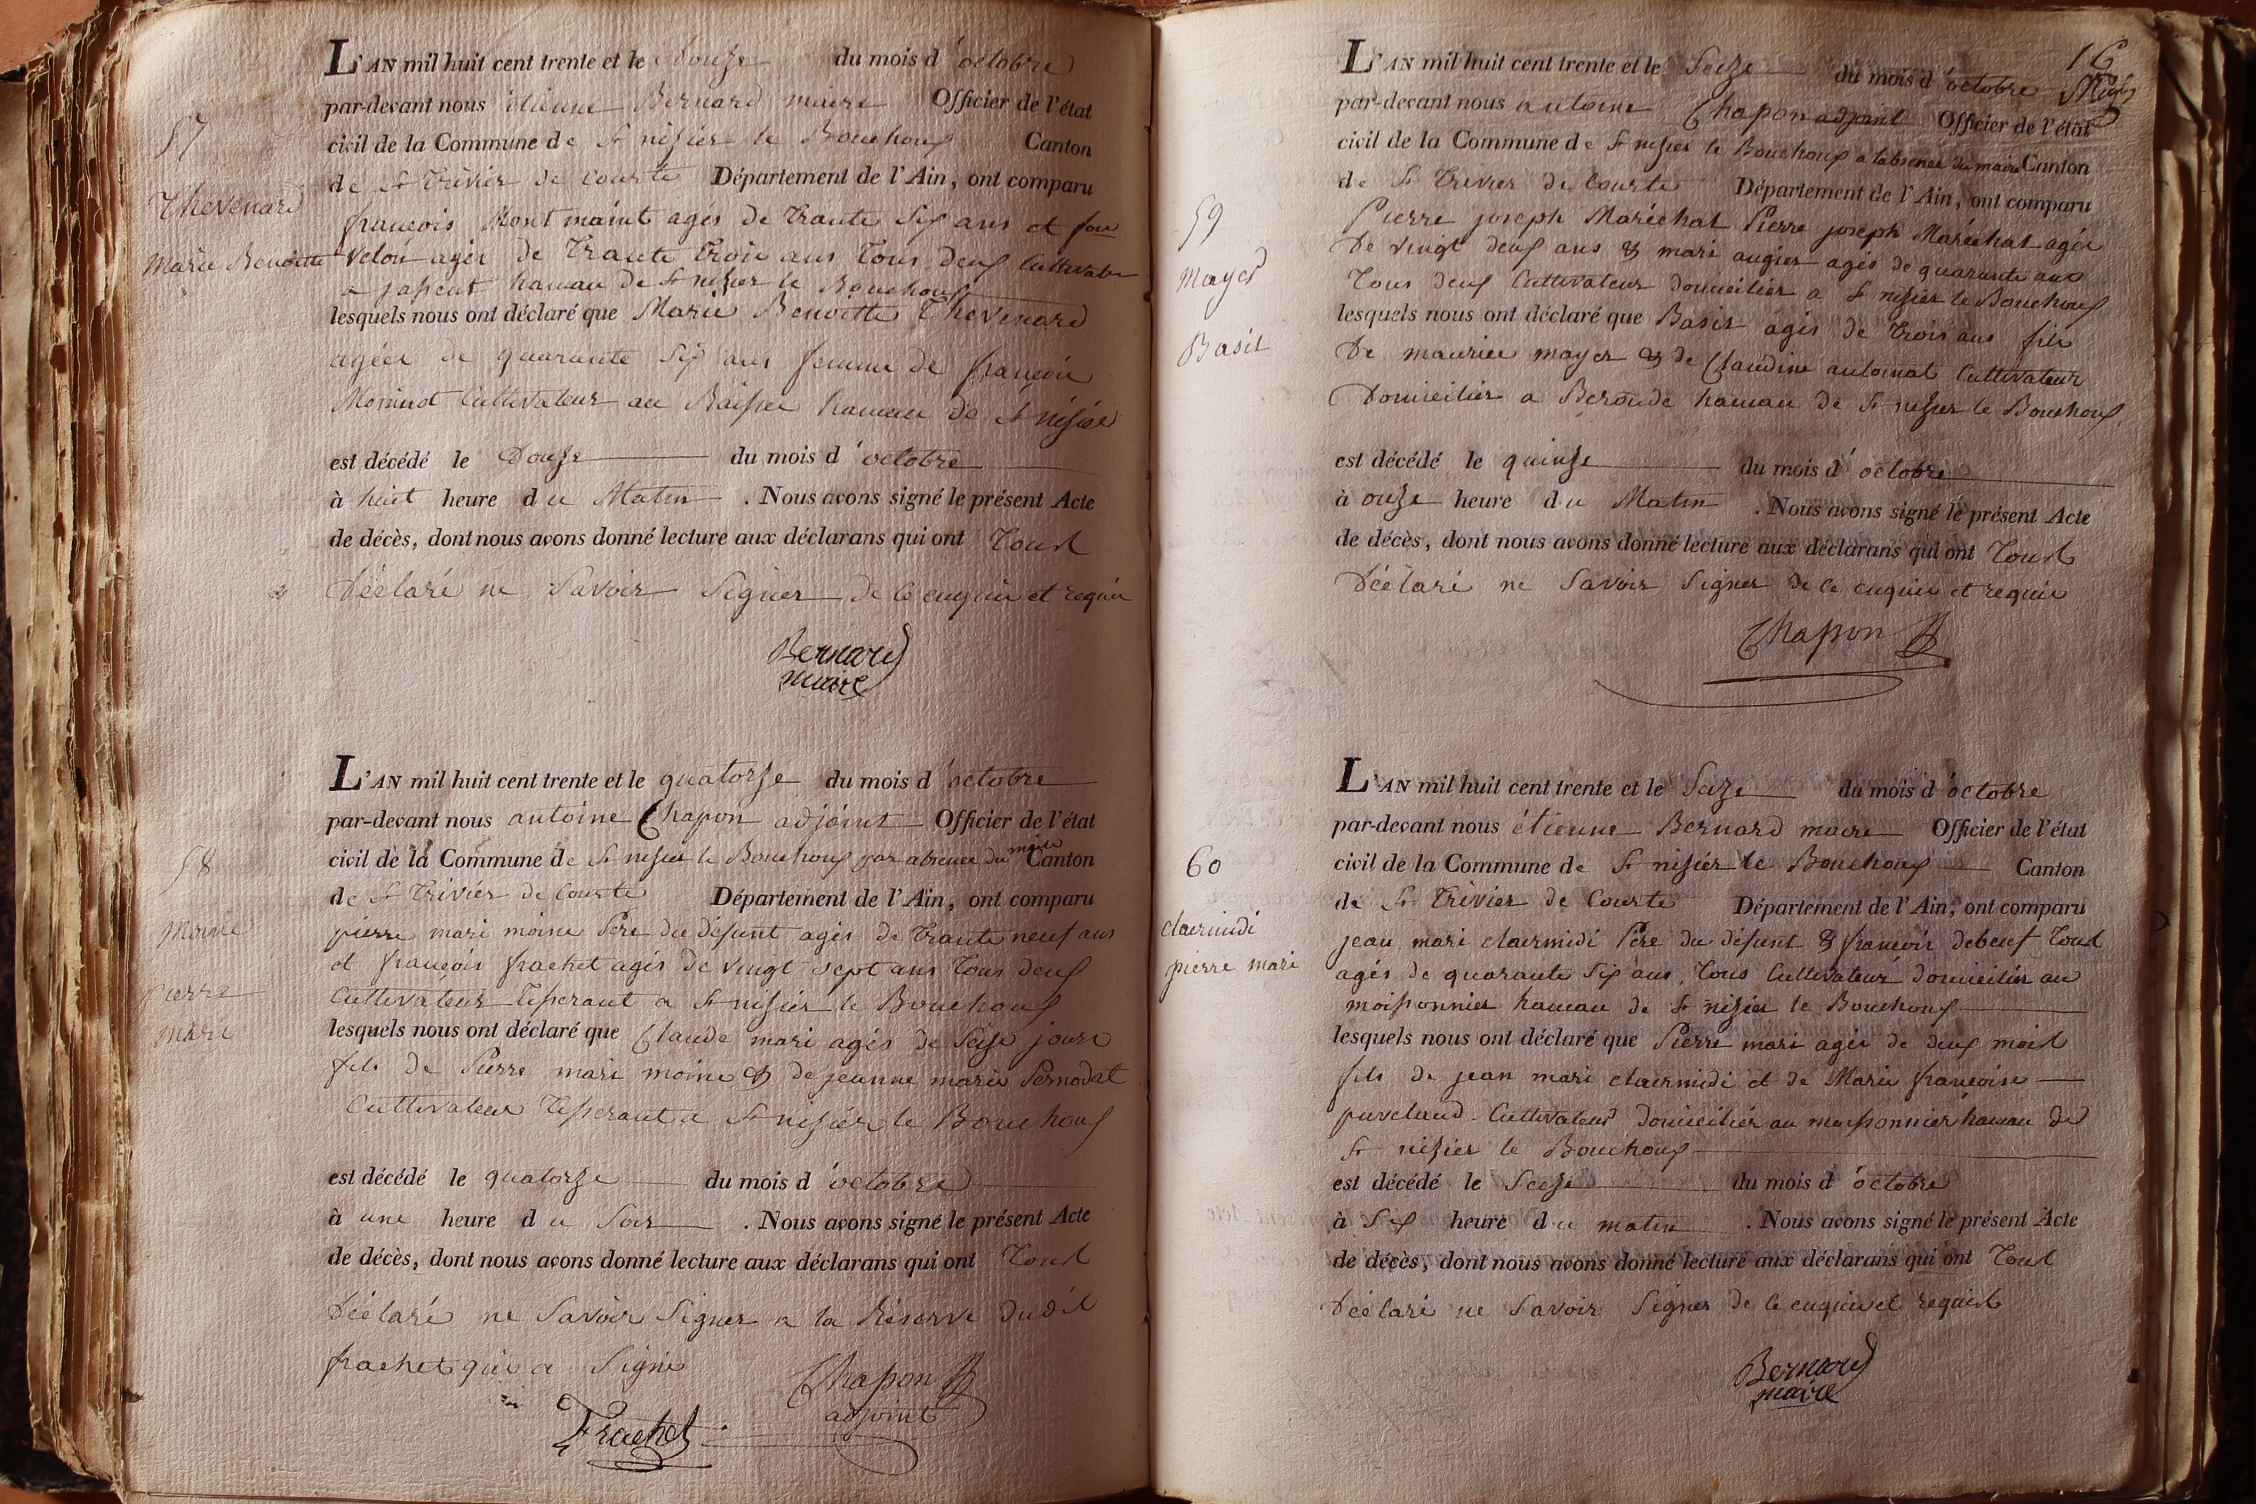 L'AN mil huit cent trente et le Douze du mois d'octobre
par-devant nous étienne Bernard maire Officier de l'état
57
civil de la Commune de St nizier le Bouchoux Canton
de St Trivier de Courte Département de l'Ain, ont comparu
Thevenard
françois Montmaint agés de Trante Six ans et
Marie Benoitte
agés de Trante Trois ans Tous deux Cultivateur
a hamau de St nizier le Bouchoux
lesquels nous ont déclaré que Marie Benoitte Thevenard
agéee de quarante Six ans femme de françois
Cultivateur au hamau de St nizier
est décédé le Douze du mois d'octobre
à huit heure du Matin. Nous avons signé le présent Acte
de décès, dont nous avons donné lecture aux déclarans qui ont Tout
Déclaré ne Savoir Signer de ce enquis et requis
Bernard
maire
L'AN mil huit cent trente et le quatorze du mois d'octobre
par-devant nous antoine Chapon adjoint Officier de l'état
58
civil de la Commune de St nizier le Bouchoux par absence du maire Canton
de St Trivier de Courte Département de l'Ain, ont comparu
Moine
pierre mari moine Pere du défunt agés de Trante neuf ans
et françois frachet agés de vingt sept ans Tous deux
pierre
Cultivateur a St nizier le Bouchoux
mari
lesquels nous ont déclaré que Claude mari agés de Seize jours
fils de Pierre mari moine & de jeanne marie
Cultivateur a St nizier le Bouchoux
est décédé le quatorze du mois d'octobre
à une heure du Soir. Nous avons signé le présent Acte
de décès, dont nous avons donné lecture aux déclarans qui ont Tout
Déclaré ne Savoir Signer a la Réserve dudit
frachet qui a Signé
Chapon
adjoint
Frachet
16
L'AN mil huit cent trente et le Seize du mois d'octobre
par-devant nous antoine Chapon adjoint Officier de l'état
civil de la Commune de St nizier le Bouchoux a labsence du maire Canton
de St Trivier de Courte Département de l'Ain, ont comparu
59
Pierre joseph Maréchal Pierre joseph Maréchal agés
De vingt deux ans & mari augier agés de quarante ans
Mayer
Tous deux Cultivateur domicilier a St nizier le Bouchoux
lesquels nous ont déclaré que Basit agés de Trois ans fils
Basit
De maurice mayer & de Claudine antoinat Cultivateur
Domicilier a Béroude hamau de St nizier le Bouchoux
est décédé le quinze du mois d'octobre
à onze heure du Matin. Nous avons signé le présent Acte
de décès, dont nous avons donné lecture aux déclarans qui ont Tout
Déclaré ne Savoir Signer de ce enquis et requis
Chapon
L'AN mil huit cent trente et le Seize du mois d'octobre
par-devant nous étienne Bernard maire Officier de l'état
60
civil de la Commune de St nizier le Bouchoux Canton
de St Trivier de Courte Département de l'Ain, ont comparu
clairmidi
jean mari clairmidi Pere du défunt & françois debeuf Tout
pierre mari
agés de quarante Six ans, Tous Cultivateur domicilier au
moissonnier hamau de St nizier le Bouchoux
lesquels nous ont déclaré que Pierre mari agés de deux mois
fils de jean mari clairmidi et de Marie françoise
puveland Cultivateur domicilier au moissonnier hamau de
St nizier le Bouchoux
est décédé le Seize du mois d'octobre
à Six heure du matin. Nous avons signé le présent Acte
de décès, dont nous avons donné lecture aux déclarans qui ont Tout
Déclaré ne Savoir Signer de ce enquis et requis
Bernard
maire